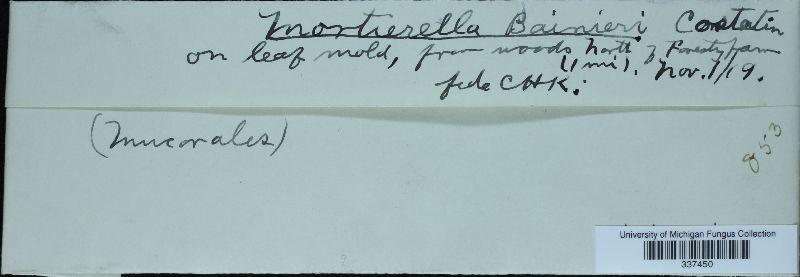 Mortierella Bainieri Costatin
on leaf mold, from woods North of Forestry farm
(1 mi). Nov. 1/19.
fide CHK.
(Mucorales)
853
University of Michigan Fungus Collection
337450